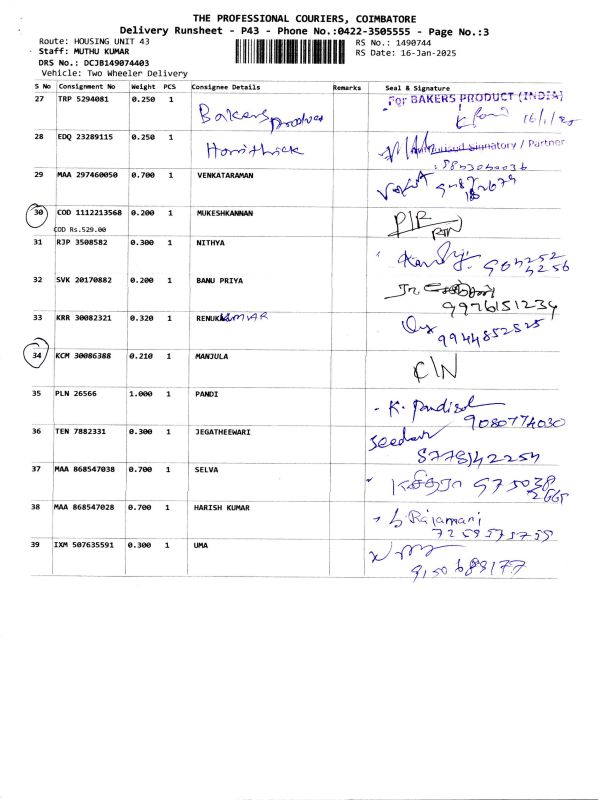 THE PROFESSIONAL COURIERS, COIMBATORE
Delivery Runsheet - P43 - Phone No.:0422-3505555 - Page No.:3
Route: HOUSING UNIT 43 RS No.: 1490744
Staff: MUTHU KUMAR RS Date: 16-Jan-2025
DRS No.: DCJB149074403
Vehicle: Two Wheeler Delivery
S No Consignment No Weight PCS Consignee Details Remarks Seal & Signature
27 TRP 5294081 0.250 1 Bakers For BAKERS PRODUCT (INDIA)
16/1/25
28 EDQ 23289115 0.250 1 Signatory / Partner
29 MAA 297460050 0.700 1 VENKATARAMAN
30 COD 1112213568 0.200 1 MUKESHKANNAN P/R
COD Rs.529.00
31 RJP 3508582 0.300 1 NITHYA
32 SVK 20170882 0.200 1 BANU PRIYA
9976151234
33 KRR 30082321 0.320 1 RENUKA KUMAR
9944852525
34 KCM 30086388 0.210 1 MANJULA C/N
35 PLN 26566 1.000 1 PANDI - K.
9080774030
36 TEN 7882331 0.300 1 JEGATHEEWARI
8778142254
37 MAA 868547038 0.700 1 SELVA 975038
2665
38 MAA 868547028 0.700 1 HARISH KUMAR Rajamani
39 IXM 507635591 0.300 1 UMA
9150689177